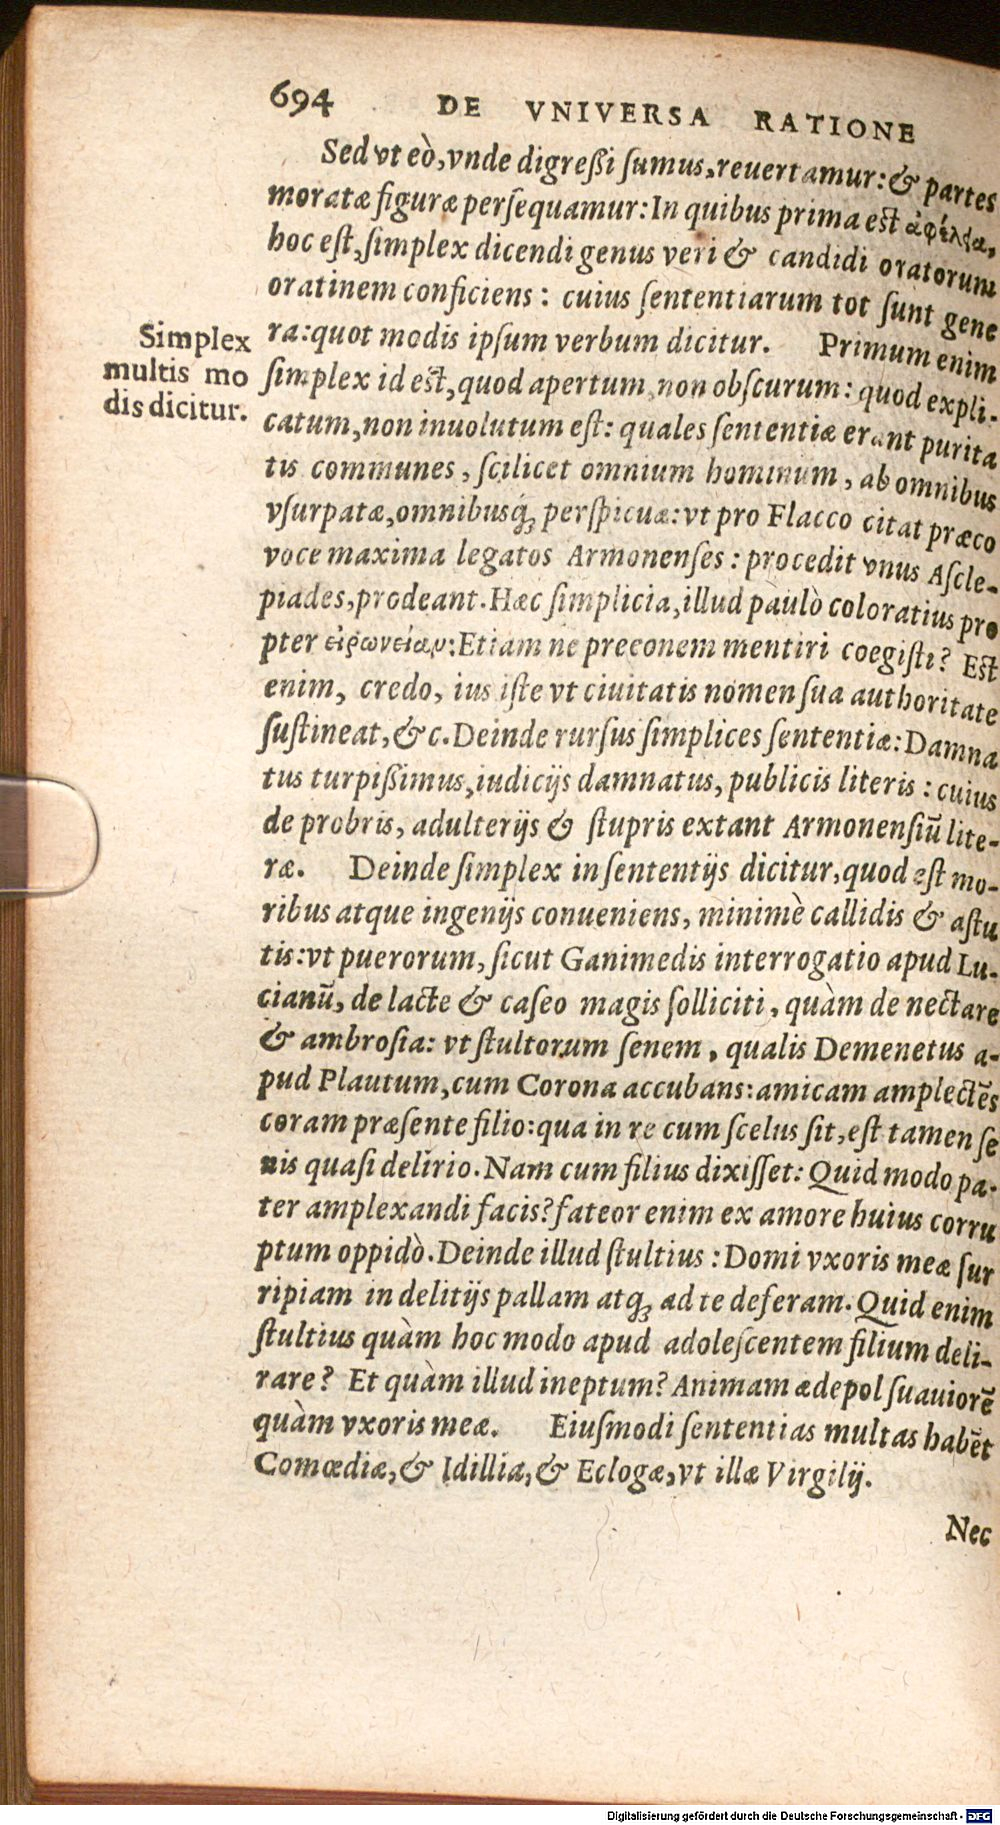 694 DE VNIVERSA RATIONE
Sed vt eò, vnde digreßi sumus, reuertamur: & partes
moratæ figuræ persequamur: In quibus prima est ἀφέλεια,
hoc est, simplex dicendi genus veri & candidi oratorum
oratinem conficiens: cuius sententiarum tot sunt gene
ra: quot modis ipsum verbum dicitur. Primum enim
Simplex
multis mo
dis dicitur.
simplex id est, quod apertum, non obscurum: quod expli-
catum, non inuolutum est: quales sententiæ erant purita
tis communes, scilicet omnium hominum, ab omnibus
vsurpatæ, omnibusq́ꝫ perspicuæ: vt pro Flacco citat præco
voce maxima legatos Armonenses: procedit vnus Ascle-
piades, prodeant. Hæc simplicia, illud paulò coloratius pro
pter εἰρωνείαν: Etiam ne preconem mentiri coegisti? Est
enim, credo, ius iste vt ciuitatis nomen sua authoritate
sustineat, &c. Deinde rursus simplices sententiæ: Damna
tus turpißimus, iudicijs damnatus, publicis literis: cuius
de probris, adulterijs & stupris extant Armonensiū lite-
ræ. Deinde simplex in sententijs dicitur, quod est mo-
ribus atque ingenijs conueniens, minimè callidis & astu
tis: vt puerorum, sicut Ganimedis interrogatio apud Lu-
cianū, de lacte & caseo magis solliciti, quàm de nectare
& ambrosia: vt stultorum senem, qualis Demenetus a-
pud Plautum, cum Corona accubans: amicam amplectēs
coram præsente filio: qua in re cum scelus sit, est tamen se
nis quasi delirio. Nam cum filius dixisset: Quid modo pa-
ter amplexandi facis? fateor enim ex amore huius corru
ptum oppidò. Deinde illud stultius: Domi vxoris meæ sur
ripiam in delitijs pallam atqꝫ ad te deferam. Quid enim
stultius quàm hoc modo apud adolescentem filium deli-
rare? Et quàm illud ineptum? Animam ædepol suauiorē
quàm vxoris meæ. Eiusmodi sententias multas habēt
Comœdiæ, & Idillia, & Eclogæ, vt illæ Virgilij.
Nec
Digitalisierung gefördert durch die Deutsche Forschungsgemeinschaft - DFG